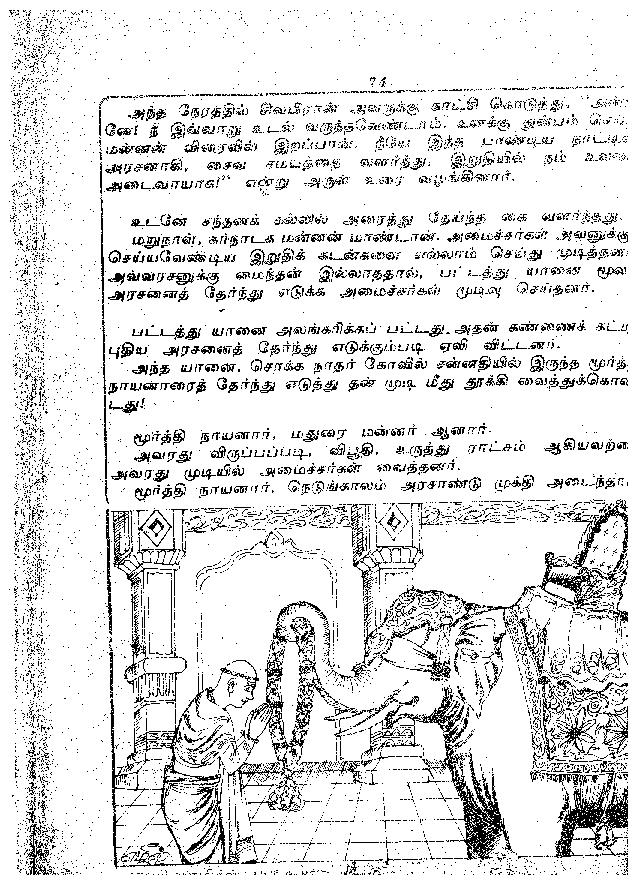 74
அந்த நேரத்தில் சிவபிரான் அவருக்கு காட்சி கொடுத்து,
னே! நீ இவ்வாறு உடல் வருந்தவேண்டாம். உனக்கு துன்பம்
மன்னன் விரைவில் இறப்பான். நீயே இந்த பாண்டிய
அரசனாகி, சைவ சமயத்தை வளர்த்து, இறுதியில் நம்
அடைவாயாக!" என்று அருள் உரை வழங்கினார்.
உடனே சந்தனக் கல்லில் அரைத்து தேய்ந்த கை வளர்ந்தது.
மறுநாள், கர்நாடக மன்னன் மாண்டான். அமைச்சர்கள் அவனுக்கு
செய்யவேண்டிய இறுதிக் கடன்களை எல்லாம் செய்து
அவ்வரசனுக்கு மைந்தன் இல்லாததால், பட்டத்து யானை
அரசனைத் தேர்ந்து எடுக்க அமைச்சர்கள் முடிவு செய்தனர்.
பட்டத்து யானை அலங்கரிக்கப் பட்டது. அதன் கண்ணைக்
புதிய அரசனைத் தேர்ந்து எடுக்கும்படி ஏவி விட்டனர்.
அந்த யானை, சொக்க நாதர் கோவில் சன்னதியில் இருந்த
நாயனாரைத் தேர்ந்து எடுத்து தன் முடி மீது தூக்கி
டது!
மூர்த்தி நாயனார், மதுரை மன்னர் ஆனார்.
அவரது விருப்பப்படி, விபூதி, உருத்து ராட்சம்
அவரது முடியில் அமைச்சர்கள் வைத்தனர்.
மூர்த்தி நாயனார், நெடுங்காலம் அரசாண்டு முக்தி